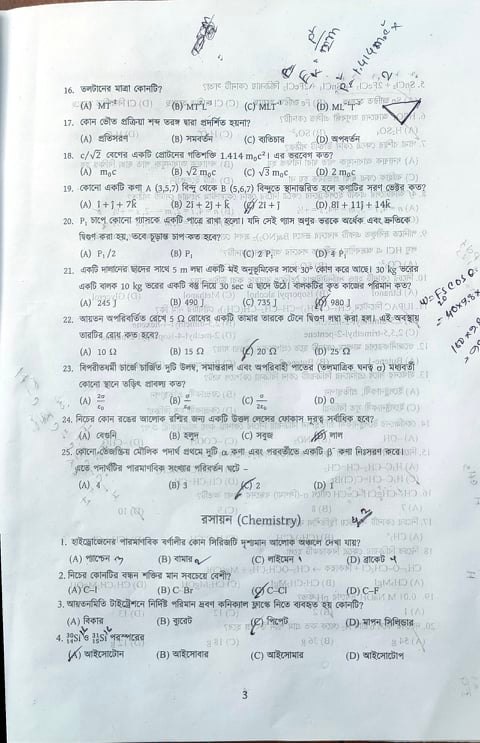 16. তলটানের মাত্রা কোনটি?
(A) MT⁻² (B) MT⁻²L (C) MLT⁻¹ (D) ML⁻²T
17. কোন ভৌত প্রক্রিয়া শব্দ তরঙ্গ দ্বারা প্রদর্শিত হয়না?
(A) প্রতিসরণ (B) সমবর্তন (C) ব্যতিচার (D) অপবর্তন
18. c/√2 বেগের একটি প্রোটনের গতিশক্তি 1.414 m₀c²। এর ভরবেগ কত?
(A) m₀c (B) √2 m₀c (C) √3 m₀c (D) 2 m₀c
19. কোনো একটি কণা A (3,5,7) বিন্দু থেকে B (5,6,7) বিন্দুতে স্থানান্তরিত হলে কণাটির সরণ ভেক্টর কত?
(A) 1+j+7k (B) 2i+2j+k (C) 2i+j (D) 8i+11j+14k
20. P₁ চাপে কোনো গ্যাসকে একটি পাত্রে রাখা হলো। যদি সেই গ্যাস অণুর ভরকে অর্ধেক এবং দ্রুতিকে
দ্বিগুণ করা হয়, তবে চূড়ান্ত চাপ কত হবে?
(A) P₁/2 (B) P₁ (C) 2 P₁ (D) 4 P₁
21. একটি দালানের ছাদের সাথে 5 m লম্বা একটি মই অনুভূমিকের সাথে 30° কোণ করে আছে। 30 kg ভরের
একটি বালক 10 kg ভরের একটি বস্তু নিয়ে 30 sec এ ছাদে উঠে। বালকটির কৃত কাজের পরিমাণ কত?
(A) 245 J (B) 490 J (C) 735 J (D) 980 J
22. আয়তন অপরিবর্তিত রেখে 5 Ω রোধের একটি তামার তারকে টেনে দ্বিগুণ লম্বা করা হল। এই অবস্থায়
তারটির রোধ কত হবে?
(A) 10 Ω (B) 15 Ω (C) 20 Ω (D) 25 Ω
23. বিপরীতধর্মী চার্জে চার্জিত দুটি উলম্ব, সমান্তরাল এবং অপরিবাহী পাতের (তলমাত্রিক ঘনত্ব σ) মধ্যবর্তী
কোনো স্থানে তড়িৎ প্রাবল্য কত?
(A) 2σ/ε₀ (B) σ/ε₀ (C) σ/2ε₀ (D) 0
24. নিচের কোন রঙের আলোক রশ্মির জন্য একটি উত্তল লেন্সের ফোকাস দূরত্ব সর্বাধিক হবে?
(A) বেগুনি (B) হলুদ (C) সবুজ (D) লাল
25. কোনো তেজস্ক্রিয় মৌলিক পদার্থ প্রথমে দুটি α কণা এবং পরবর্তীতে একটি β⁻ কণা নিঃসরণ করে।
এতে পদার্থটির পারমাণবিক সংখ্যার পরিবর্তন ঘটে –
(A) 4 (B) 3 (C) 2 (D) 1
রসায়ন (Chemistry)
1. হাইড্রোজেনের পারমাণবিক বর্ণালীর কোন সিরিজটি দৃশ্যমান আলোক অঞ্চলে দেখা যায়?
(A) প্যাশ্চেন (B) বামার (C) লাইমেন (D) ব্রাকেট
2. নিচের কোনটির বন্ধন শক্তির মান সবচেয়ে বেশী?
(A) C–I (B) C–Br (C) C–Cl (D) C–F
3. আয়তনমিতি টাইট্রেশনে নির্দিষ্ট পরিমান দ্রবণ কনিক্যাল ফ্লাস্কে নিতে ব্যবহৃত হয় কোনটি?
(A) বিকার (B) ব্যুরেট (C) পিপেট (D) মাপন সিলিন্ডার
4. ³⁰₁₄Si ও ³¹₁₅Si পরস্পরের
(A) আইসোটোন (B) আইসোবার (C) আইসোমার (D) আইসোটোপ
3